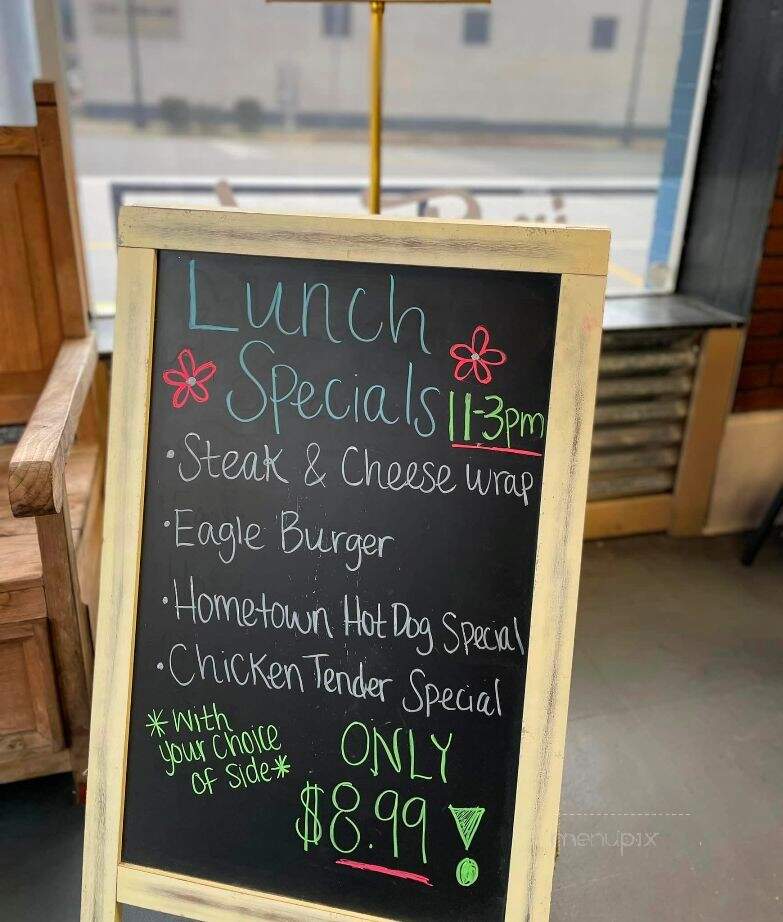 Lunch
Specials 11-3pm
•Steak & Cheese wrap
•Eagle Burger
•Hometown Hot Dog Special
•Chicken Tender Special
*With
your choice
of side*
ONLY
$8.99!
menupix